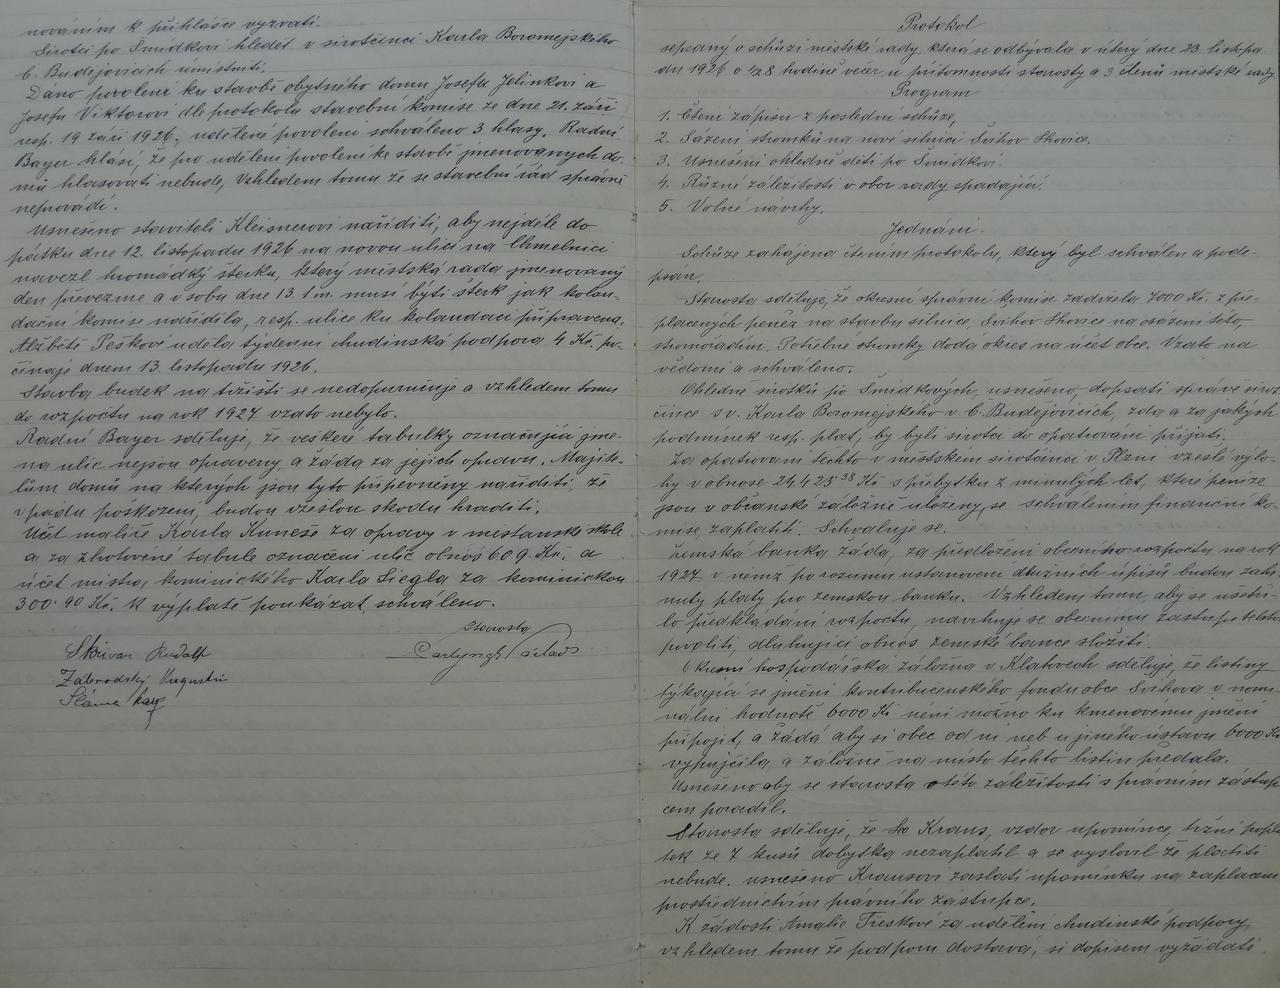 nováním k přihlášce vyzvati.
Sirotci po Šmidkovi hledět v sirotčinci Karla Boromejského
Č. Budějovicích umístniti.
Dáno povolení ku stavbě obytného domu Josefu Jelinkovi a
Josefu Viktorovi dle protokolu stavební komise ze dne 21. září
resp. 19 září 1926, udělené povolení schváleno 3 hlasy. Radní
Bayer hlásí, že pro udělení povolení ke stavbě jmenovaných do-
mů hlasovati nebude, Vzhledem tomu že se stavební řád správně
neprovádí.
Usneseno staviteli Kleisnerovi naříditi, aby nejdéle do
pátku dne 12. listopadu 1926 na novou ulici na Chmelnici
navezl hromádky šterku, který městská rada jmenovaný
den převezme a v sobotu dne 13. t.m. musí býti šterk jak kolau-
dační komise nařídila, resp. ulice ku kolaudaci připravena.
Alžbětě Peškové udělá týdenní chudinská podpora 4 Kč. po-
čínaje dnem 13. listopadu 1926.
Stavba budek na tržišti se nedoporučuje a vzhledem tomu
do rozpočtu na rok 1927 vzato nebylo.
Radní Bayer sděluje, že veškeré tabulky označující jmé-
na ulic nejsou opraveny a žádá za jejich opravu. Majite-
lům domů na kterých jsou tyto připevněny naříditi, že
v pádu poškození, budou vzešlou škodu hraditi.
Účet malíře Karla Kuneše za opravy v měšťanské škole
a za zhotovené tabule označení ulic obnos 609 Kč. a
účet mistra kominického Karla Siegla za kominickou
300·90 Kč. k výplatě poukázat schváleno.
Starosta
Skřivan Rudolf
Zábrodský Augustin
Sláma Karel
Protokol
sepsaný o schůzi městské rady, která se odbývala v úterý dne 23. listopa
du 1926 o 1/2 8 hodině večer, u přítomnosti starosty a 3 členů městské rady
Program
1. Čtení zápisu z poslední schůze,
2. Sázení stromků na nové silnici Švihov Lhovice,
3. Usnešení ohledně dětí po Šmidkovi.
4. Různé záležitosti v obor rady spadající.
5. Volné návrhy.
Jednání.
Schůze zahájena čtením protokolu, který byl schválen a pode-
psán.
Starosta sděluje, že okresní správní komise zadržela 7000 Kč. z pře-
placených peněz na stavbu silnice, Švihov Lhovice na osázení této,
stromořadím. Potřebné stromky dodá okres na účet obce. Vzato na
vědomí a schváleno.
Ohledně sirotků po Šmidkových, usneseno, dopsati správě sirot
čince sv. Karla Boromejského v Č. Budějovicích, zda a za jakých
podmínek resp. plat, by byli sirota do opatrování přijati.
Za opatrování těchto v městském sirotčinci v Plzni vzešlé výlo-
hy v obnose 24.423·38 Kč s přebytku z minulých let, které peníze
jsou v občanské záložně uloženy, se schválením finanční ko-
mise, zaplatiti. Schvaluje se.
Zemská banka žádá, za předložení obecního rozpočtu na rok
1927 v němž po rozumu ustanovení dlužních úpisů budou zahr-
nuty platy pro zemskou banku. Vzhledem tomu aby se ušetři-
lo předkládání rozpočtu, navrhuje se obecnímu zastupitelstvu
povoliti, dluhující obnos zemské bance složiti.
Okresní hospodářská záložna v Klatovech sděluje, že listiny
týkající se jmění kontribučenského fondu obce Švihova v nomi-
nální hodnotě 6000 Kč není možno ku kmenovému jmění
připojit, a žádá aby si obec od ní neb u jiného ústavu 6000 Kč
vypůjčila, a záložně na místo těchto listin předala.
Usneseno aby se starosta o této záležitosti s právním zástup
cem poradil.
Starosta sděluje, že Kraus, vzdor upomínce, tržní popla
tek ze 7 kusů dobytka nezaplatil a se vyslovil že platiti
nebude. usneseno Krausovi zaslati upomínku na zaplacení
prostřednictvím právního zástupce.
K žádosti Amalie Treskové za udělení chudinské podpory
vzhledem tomu že podporu dostává, si dopisem vyžádati